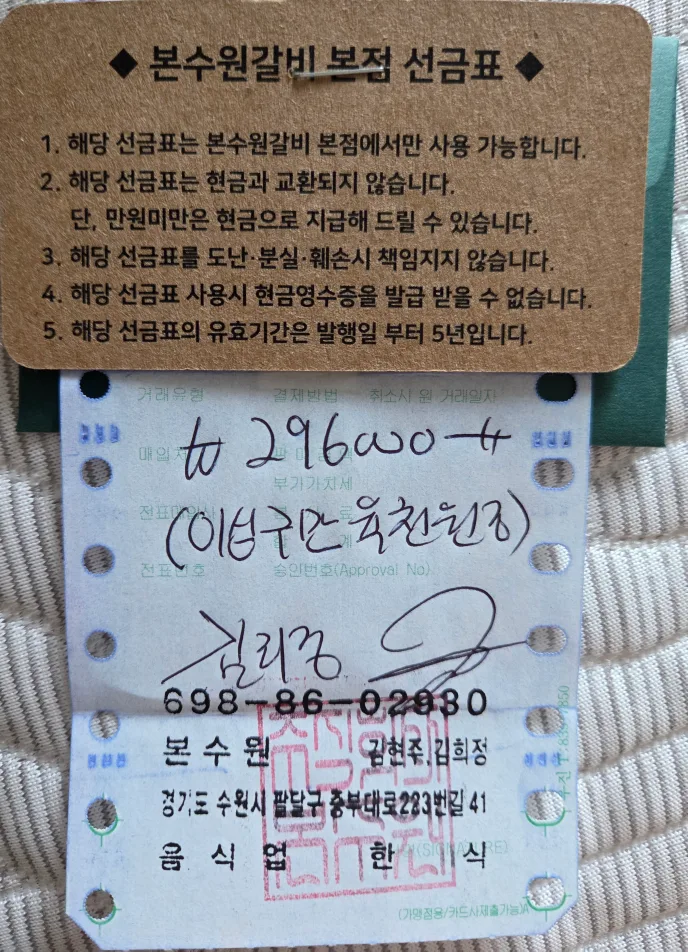 ◆ 본수원갈비 본점 선금표 ◆
1. 해당 선금표는 본수원갈비 본점에서만 사용 가능합니다.
2. 해당 선금표는 현금과 교환되지 않습니다.
단, 만원미만은 현금으로 지급해 드릴 수 있습니다.
3. 해당 선금표를 도난·분실·훼손시 책임지지 않습니다.
4. 해당 선금표 사용시 현금영수증을 발급 받을 수 없습니다.
5. 해당 선금표의 유효기간은 발행일 부터 5년입니다.
거래유형 결제방법 취소시 원 거래일자
₩ 296000
매입사
부가가치세
(이십구만 육천원정)
전표번호 승인번호(Approval No).
698-86-02930
본수원 김현주,김희정
경기도 수원시 팔달구 중부대로223번길 41
음식업 한식
(SIGNATURE)
(가맹점용/카드사제출가능)